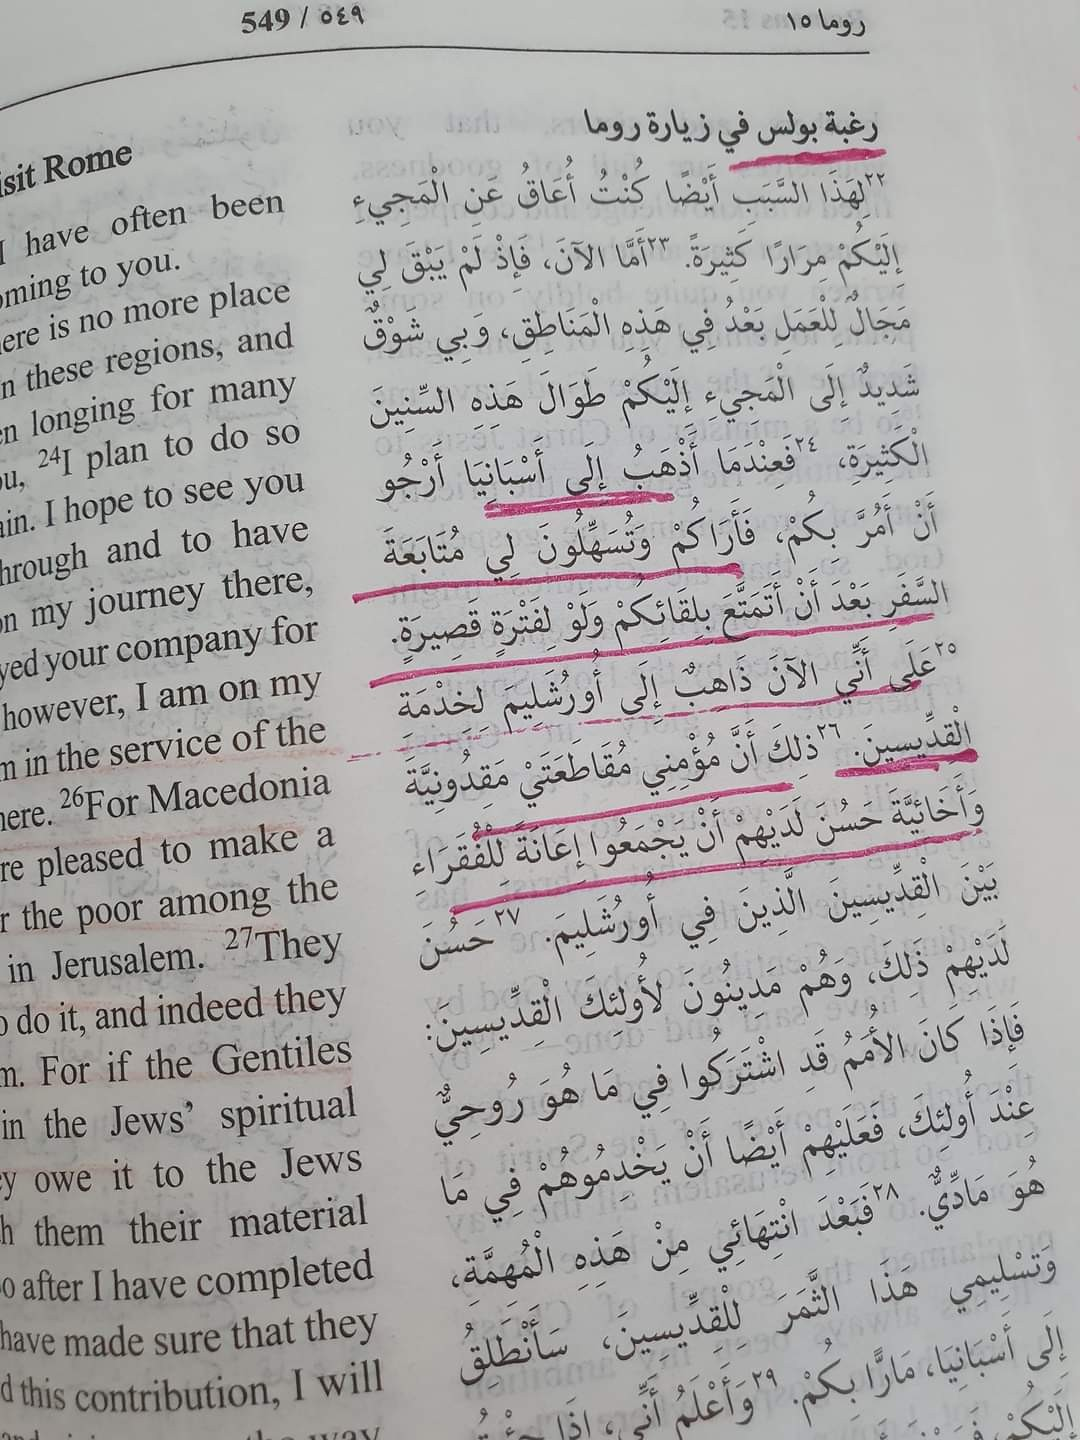 549 / ٥٤٩
روما ١٥
isit Rome
I have often been
oming to you.
ere is no more place
n these regions, and
en longing for many
ou, 24I plan to do so
ain. I hope to see you
hrough and to have
on my journey there,
yed your company for
however, I am on my
m in the service of the
here. 26For Macedonia
re pleased to make a
r the poor among the
in Jerusalem. 27They
o do it, and indeed they
m. For if the Gentiles
in the Jews' spiritual
ey owe it to the Jews
h them their material
o after I have completed
have made sure that they
d this contribution, I will
رغبة بولس في زيارة روما
٢٢لِهَذَا السَّبَبِ أَيْضًا كُنْتُ أُعَاقُ عَنِ الْمَجِيءِ
إِلَيْكُمْ مِرَارًا كَثِيرَةً. ٢٣أَمَّا الآنَ، فَإِذْ لَمْ يَبْقَ لِي
مَجَالٌ لِلْعَمَلِ بَعْدُ فِي هَذِهِ الْمَنَاطِقِ، وَبِي شَوْقٌ
شَدِيدٌ إِلَى الْمَجِيءِ إِلَيْكُمْ طَوَالَ هَذِهِ السِّنِينَ
الْكَثِيرَةِ، ٢٤فَعِنْدَمَا أَذْهَبُ إِلَى أَسْبَانِيَا أَرْجُو
أَنْ أَمُرَّ بِكُمْ، فَأَرَاكُمْ وَتُسَهِّلُونَ لِي مُتَابَعَةَ
السَّفَرِ بَعْدَ أَنْ أَتَمَتَّعَ بِلِقَائِكُمْ وَلَوْ لِفَتْرَةٍ قَصِيرَةٍ.
٢٥عَلَى أَنِّي الآنَ ذَاهِبٌ إِلَى أُورُشَلِيمَ لِخِدْمَةِ
الْقِدِّيسِينَ. ٢٦ذلِكَ أَنَّ مُؤْمِنِي مُقَاطَعَتَيْ مَقِدُونِيَّةَ
وَأَخَائِيَّةَ حَسُنَ لَدَيْهِمْ أَنْ يَجْمَعُوا إِعَانَةً لِلْفُقَرَاءِ
بَيْنَ الْقِدِّيسِينَ الَّذِينَ فِي أُورُشَلِيمَ. ٢٧حَسُنَ
لَدَيْهِمْ ذَلِكَ، وَهُمْ مَدِينُونَ لأُولئِكَ الْقِدِّيسِينَ:
فَإِذَا كَانَ الأُمَمُ قَدِ اشْتَرَكُوا فِي مَا هُوَ رُوحِيٌّ
عِنْدَ أُولئِكَ، فَعَلَيْهِمْ أَيْضًا أَنْ يَخْدِمُوهُمْ فِي مَا
هُوَ مَادِّيٌّ. ٢٨فَبَعْدَ انْتِهَائِي مِنْ هَذِهِ الْمُهِمَّةِ،
وَتَسْلِيمِي هَذَا الثَّمَرَ لِلْقِدِّيسِينَ، سَأَنْطَلِقُ
إِلَى أَسْبَانِيَا، مَارًّا بِكُمْ. ٢٩وَأَعْلَمُ أَنِّي، إِذَا جِئْتُ
إِلَيْكُمْ